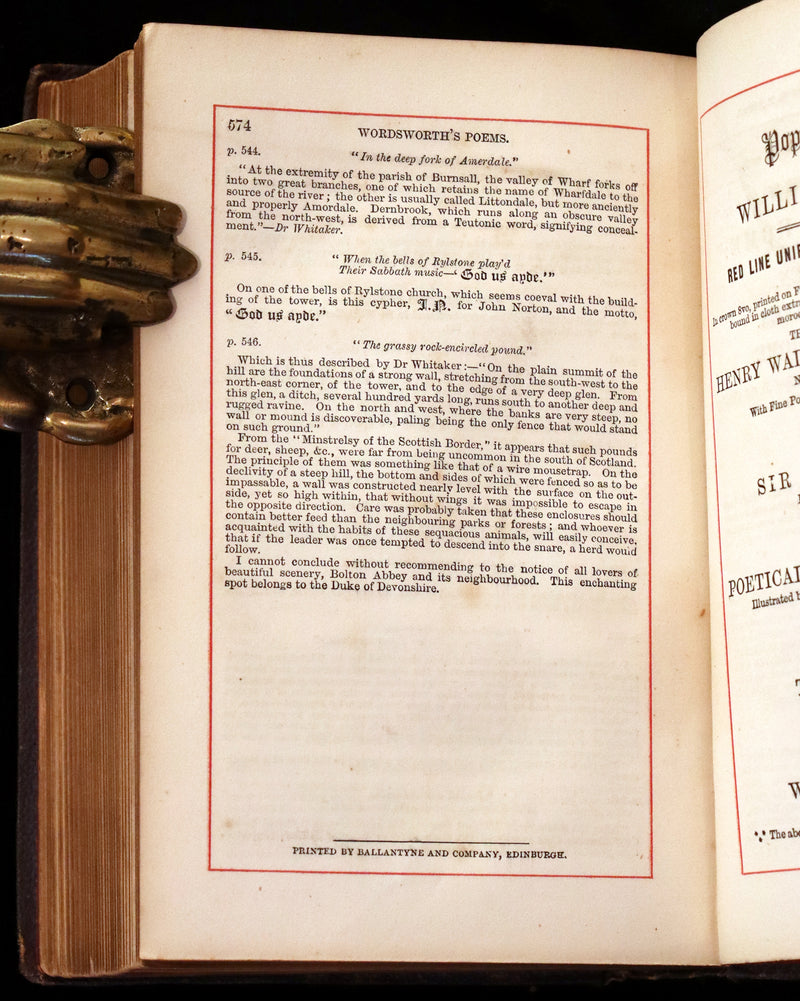 574
WORDSWORTH'S POEMS.
p. 544.
"In the deep fork of Amerdale."
"At the extremity of the parish of Burnsall, the valley of Wharf forks off
into two great branches, one of which retains the name of Wharfdale to the
source of the river; the other is usually called Littondale, but more anciently
and properly Amordale. Dernbrook, which runs along an obscure valley
from the north-west, is derived from a Teutonic word, signifying conceal-
ment."—Dr Whitaker.
p. 545.
"When the bells of Rylstone play'd
Their Sabbath music—'God us ayde.'"
On one of the bells of Rylstone church, which seems coeval with the build-
ing of the tower, is this cypher, J.N. for John Norton, and the motto,
"God us ayde."
p. 546.
"The grassy rock-encircled pound."
Which is thus described by Dr Whitaker:—"On the plain summit of the
hill are the foundations of a strong wall, stretching from the south-west to the
north-east corner, of the tower, and to the edge of a very deep glen. From
this glen, a ditch, several hundred yards long, runs south to another deep and
rugged ravine. On the north and west, where the banks are very steep, no
wall or mound is discoverable, paling being the only fence that would stand
on such ground."
From the "Minstrelsy of the Scottish Border," it appears that such pounds
for deer, sheep, &c., were far from being uncommon in the south of Scotland.
The principle of them was something like that of a wire mousetrap. On the
declivity of a steep hill, the bottom and sides of which were fenced so as to be
impassable, a wall was constructed nearly level with the surface on the out-
side, yet so high within, that without wings it was impossible to escape in
the opposite direction. Care was probably taken that these enclosures should
contain better feed than the neighbouring parks or forests; and whoever is
acquainted with the habits of these sequacious animals, will easily conceive,
that if the leader was once tempted to descend into the snare, a herd would
follow.
I cannot conclude without recommending to the notice of all lovers of
beautiful scenery, Bolton Abbey and its neighbourhood. This enchanting
spot belongs to the Duke of Devonshire.
PRINTED BY BALLANTYNE AND COMPANY, EDINBURGH.
Pop
WILLI
RED LINE UNIF
In crown 8vo, printed on F
bound in cloth extr
moroc
TH
HENRY WAD
With Fine Po
SIR
POETICAL
Illustrated b
T
W
*** The abo